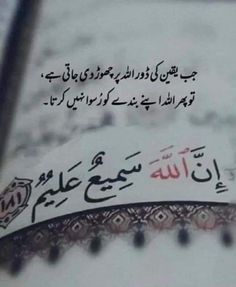 جب یقین کی ڈور اللہ پر چھوڑ دی جاتی ہے،
تو پھر اللہ اپنے بندے کو رُسوا نہیں کرتا۔
إِنَّ ٱللَّهَ سَمِيعٌ عَلِيمٌ
١٨١